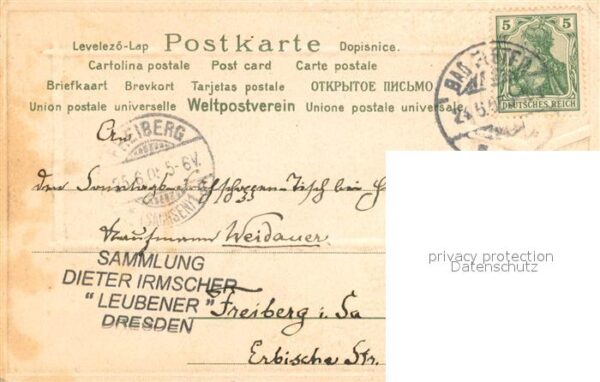 Levelező-Lap Postkarte Dopisnice.
Cartolina postale Post card Carte postale
Briefkaart Brevkort Tarjetas postale ОТКРЫТОЕ ПИСЬМО
Union postale universelle Weltpostverein Unione postale universale
5 5
DEUTSCHES REICH
BAD ELSTER
An
FREIBERG
25.6.05 5-6V.
(SACHSEN) 1
den Sonntags-Tisch bei H
Kaufmann Weidauer.
SAMMLUNG
DIETER IRMSCHER
"LEUBENER"
DRESDEN
Freiberg i. Sa
Erbische Str.
privacy protection
Datenschutz